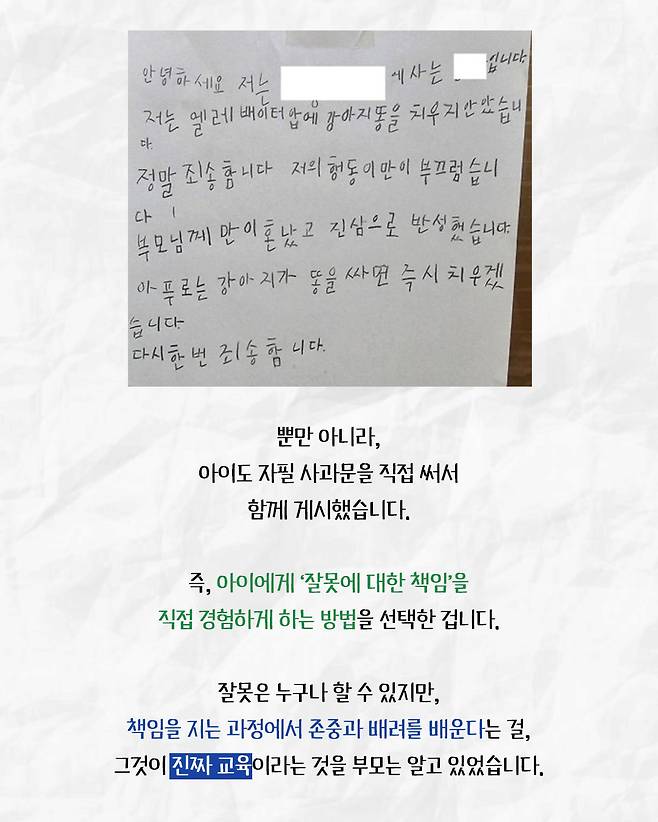 안녕하세요 저는 에사는 입니다.
저는 엘레베이터앞에 강아지똥을 치우지안았습니
다.
정말 죄송합니다 저의 행동이만이 부끄럽습니
다
부모님께 만이혼났고 진심으로 반성했습니다.
아푸로는 강아지가 똥을 싸면 즉시 치우겠
습니다.
다시한번 죄송합니다.
뿐만 아니라,
아이도 자필 사과문을 직접 써서
함께 게시했습니다.
즉, 아이에게 ‘잘못에 대한 책임’을
직접 경험하게 하는 방법을 선택한 겁니다.
잘못은 누구나 할 수 있지만,
책임을 지는 과정에서 존중과 배려를 배운다는 걸,
그것이 진짜 교육이라는 것을 부모는 알고 있었습니다.